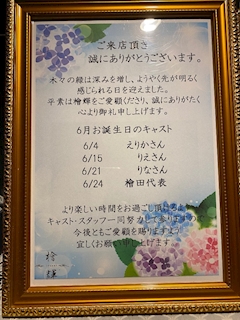 ご来店頂き
誠にありがとうございます。
木々の緑は深みを増し、ようやく先が明るく
感じられる日を迎えました。
平素は檜輝をご愛顧くださり、誠にありがたく
心より御礼申し上げます。
6月お誕生日のキャスト
6/4 えりかさん
6/15 りえさん
6/21 りなさん
6/24 檜田代表
より楽しい時間をお過ごし頂けるよう
キャスト・スタッフ一同努力して参ります
今後ともご愛顧を賜りますよう
宜しくお願い申し上げます。
檜
輝